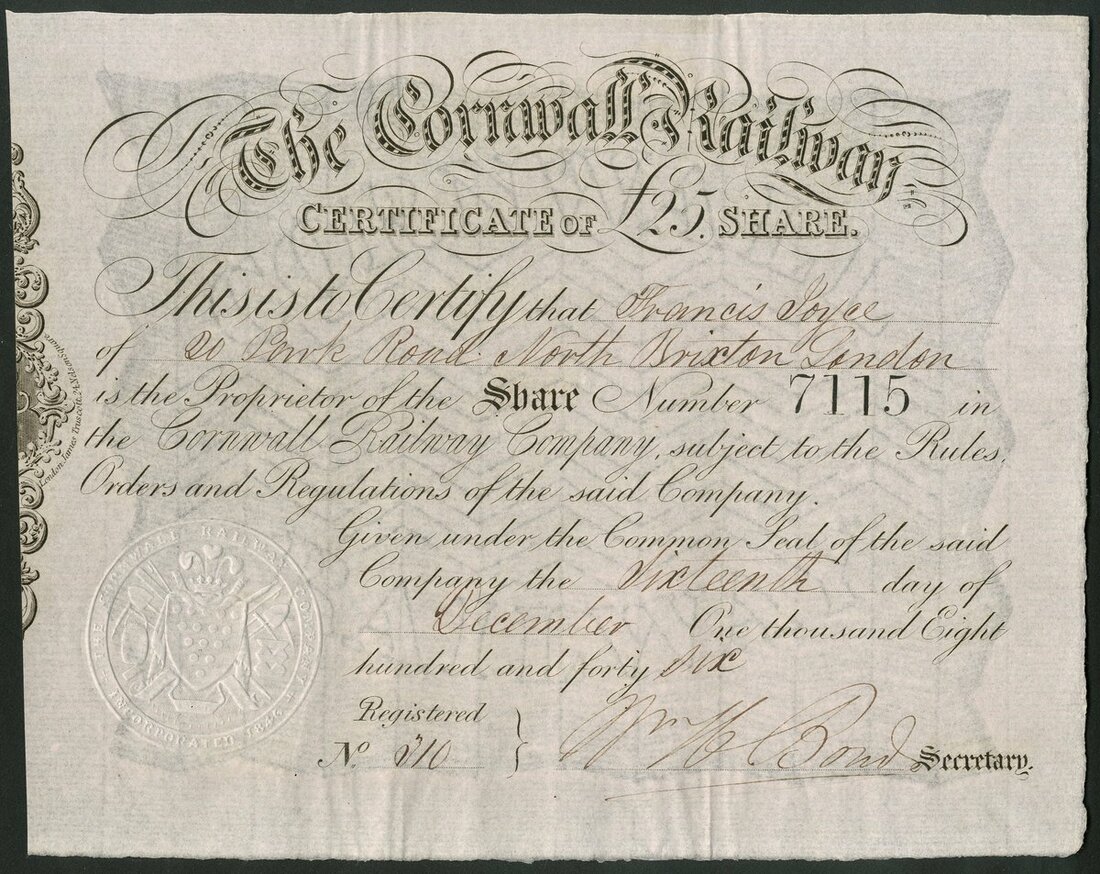 The Cornwall Railway
CERTIFICATE OF £25. SHARE.
This is to Certify that Francis Joyce
of 20 Park Road North Brixton London
is the Proprietor of the Share Number 7115 in
the Cornwall Railway Company, subject to the Rules,
Orders and Regulations of the said Company.
Given under the Common Seal of the said
Company the Sixteenth day of
December One thousand Eight
hundred and forty six
Registered
No. 210
Wm H Bond Secretary.
THE CORNWALL RAILWAY COMPANY
INCORPORATED 1846
London James Truscott